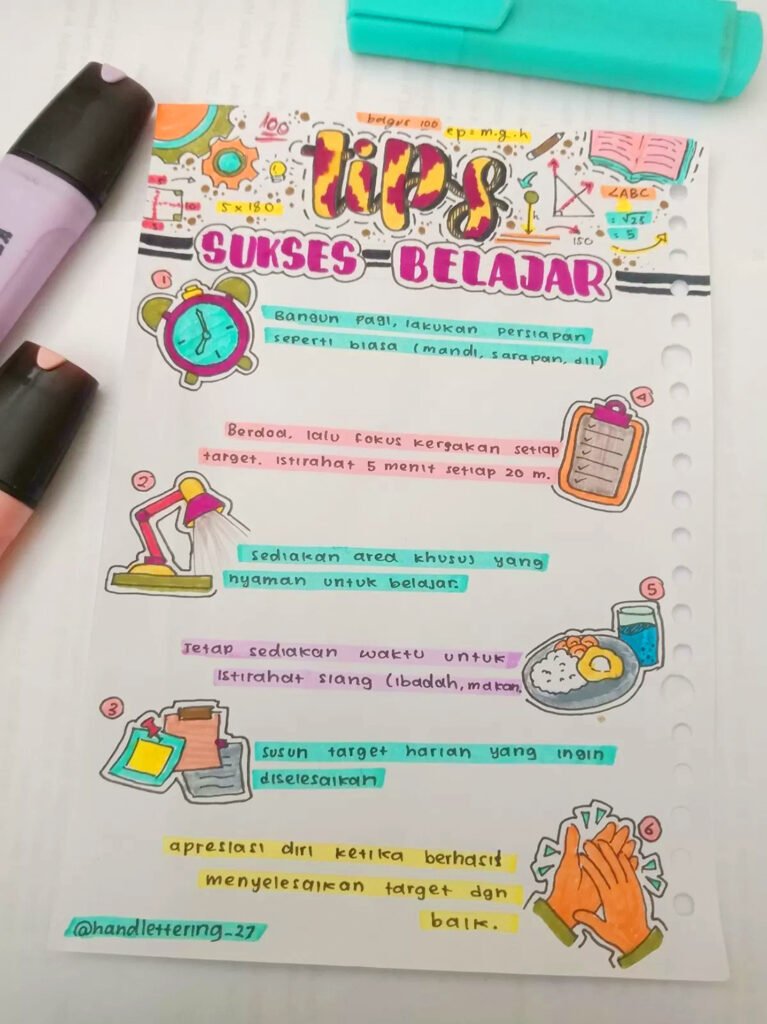 100
bagus 100
ep = m.g.h
tips
5 x 180
h
150
∠ABC
: √25
: 5
SUKSES - BELAJAR
1
Bangun pagi, lakukan persiapan
seperti biasa (mandi, sarapan, dll)
4
Berdoa, lalu fokus kerjakan setiap
target. istirahat 5 menit setiap 20 m.
2
sediakan area khusus yang
nyaman untuk belajar.
5
Tetap sediakan waktu untuk
istirahat siang (ibadah, makan,
3
susun target harian yang ingin
diselesaikan
6
apresiasi diri ketika berhasil
menyelesaikan target dgn
baik.
@handlettering_27